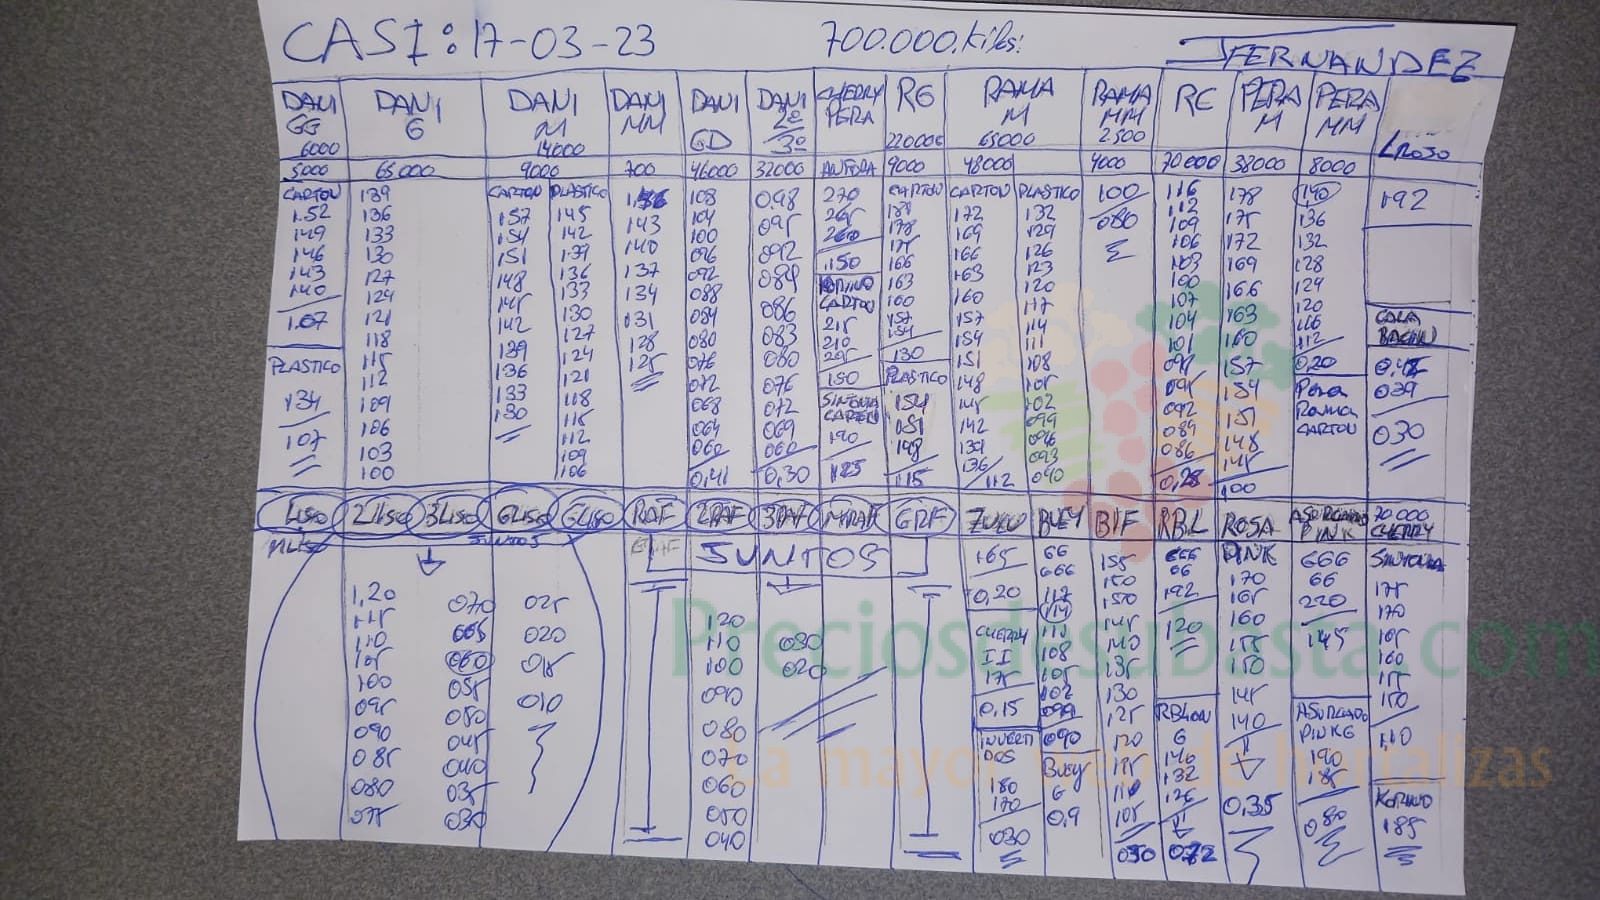 CASI: 17-03-23 700.000.Kilos: JFERNANDEZ
DANI GG 6000
DANI G
DANI M 14000
DANI MM
DANI GD
DANI 2ª 3ª
CHERRY PERA
RG 22000€
RAMA M 65000
RAMA MM 2500
RC
PERA M
PERA MM
LROSO
5000 65000 9000 700 46000 32000 ANTORA 9000 48000 4000 70000 38000 8000
CARTON
1.52
149
146
143
140
1.07
PLASTICO
134
107
139
136
133
130
127
124
121
118
115
112
109
106
103
100
CARTON
157
154
151
148
145
142
139
136
133
130
PLASTICO
145
142
139
136
133
130
127
124
121
118
115
112
109
106
143
140
137
134
131
128
125
108
104
100
096
092
088
084
080
076
072
068
064
060
0,41
0,98
095
092
089
086
083
080
076
072
069
060
0,30
270
265
260
150
KOMINO
CARTON
215
210
205
150
SINTONIA
CARTON
190
125
CARTON
178
175
166
163
160
157
154
130
PLASTICO
154
151
148
115
CARTON
172
169
166
163
160
157
154
151
148
145
142
139
136
112
PLASTICO
132
129
126
123
120
117
114
111
108
105
102
099
096
093
040
100
080
116
112
109
106
103
100
107
104
101
098
095
092
089
086
0,28
178
175
172
169
166
163
160
157
154
151
148
145
100
140
136
132
128
124
120
116
112
0,20
Pera
Rama
CARTON
192
CALA
BACIN
039
030
LISO 2LISO 3LISO GLISO GLISO RAF 2RAF 3RAF MRAF GRF ZUKU BUEY BIF RBL ROSA ASURCADO PINK 70000 CHERRY
MLISO JUNTOS
JUNTOS
1,20
115
110
105
100
095
090
085
080
075
070
065
060
055
050
045
040
035
030
025
020
015
010
120
110
100
090
080
070
060
050
040
030
020
165
0,20
CHERRY
II
175
0,15
INVERTI
DOS
180
170
030
66
666
112
114
110
108
105
102
099
090
Buey
G
0,9
155
150
150
145
140
135
130
125
120
115
110
105
050
666
66
192
120
RBLON
G
140
132
126
072
PINK
170
165
160
155
150
145
140
0,35
666
66
220
145
ASURCADO
PINKG
190
185
080
SINTONIA
175
170
165
160
155
150
110
KOMINO
185
Preciosdesubasta.com
La mayor web de hortalizas